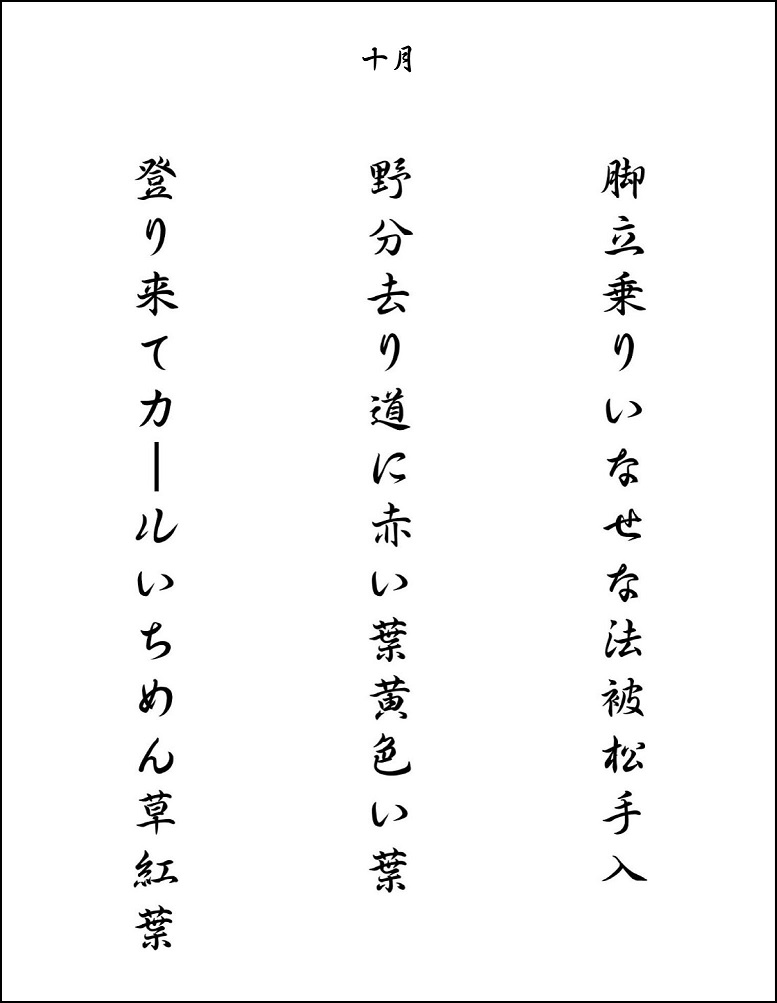 十月
脚立乗りいなせな法被松手入
野分去り道に赤い葉黄色い葉
登り来てカールいちめん草紅葉